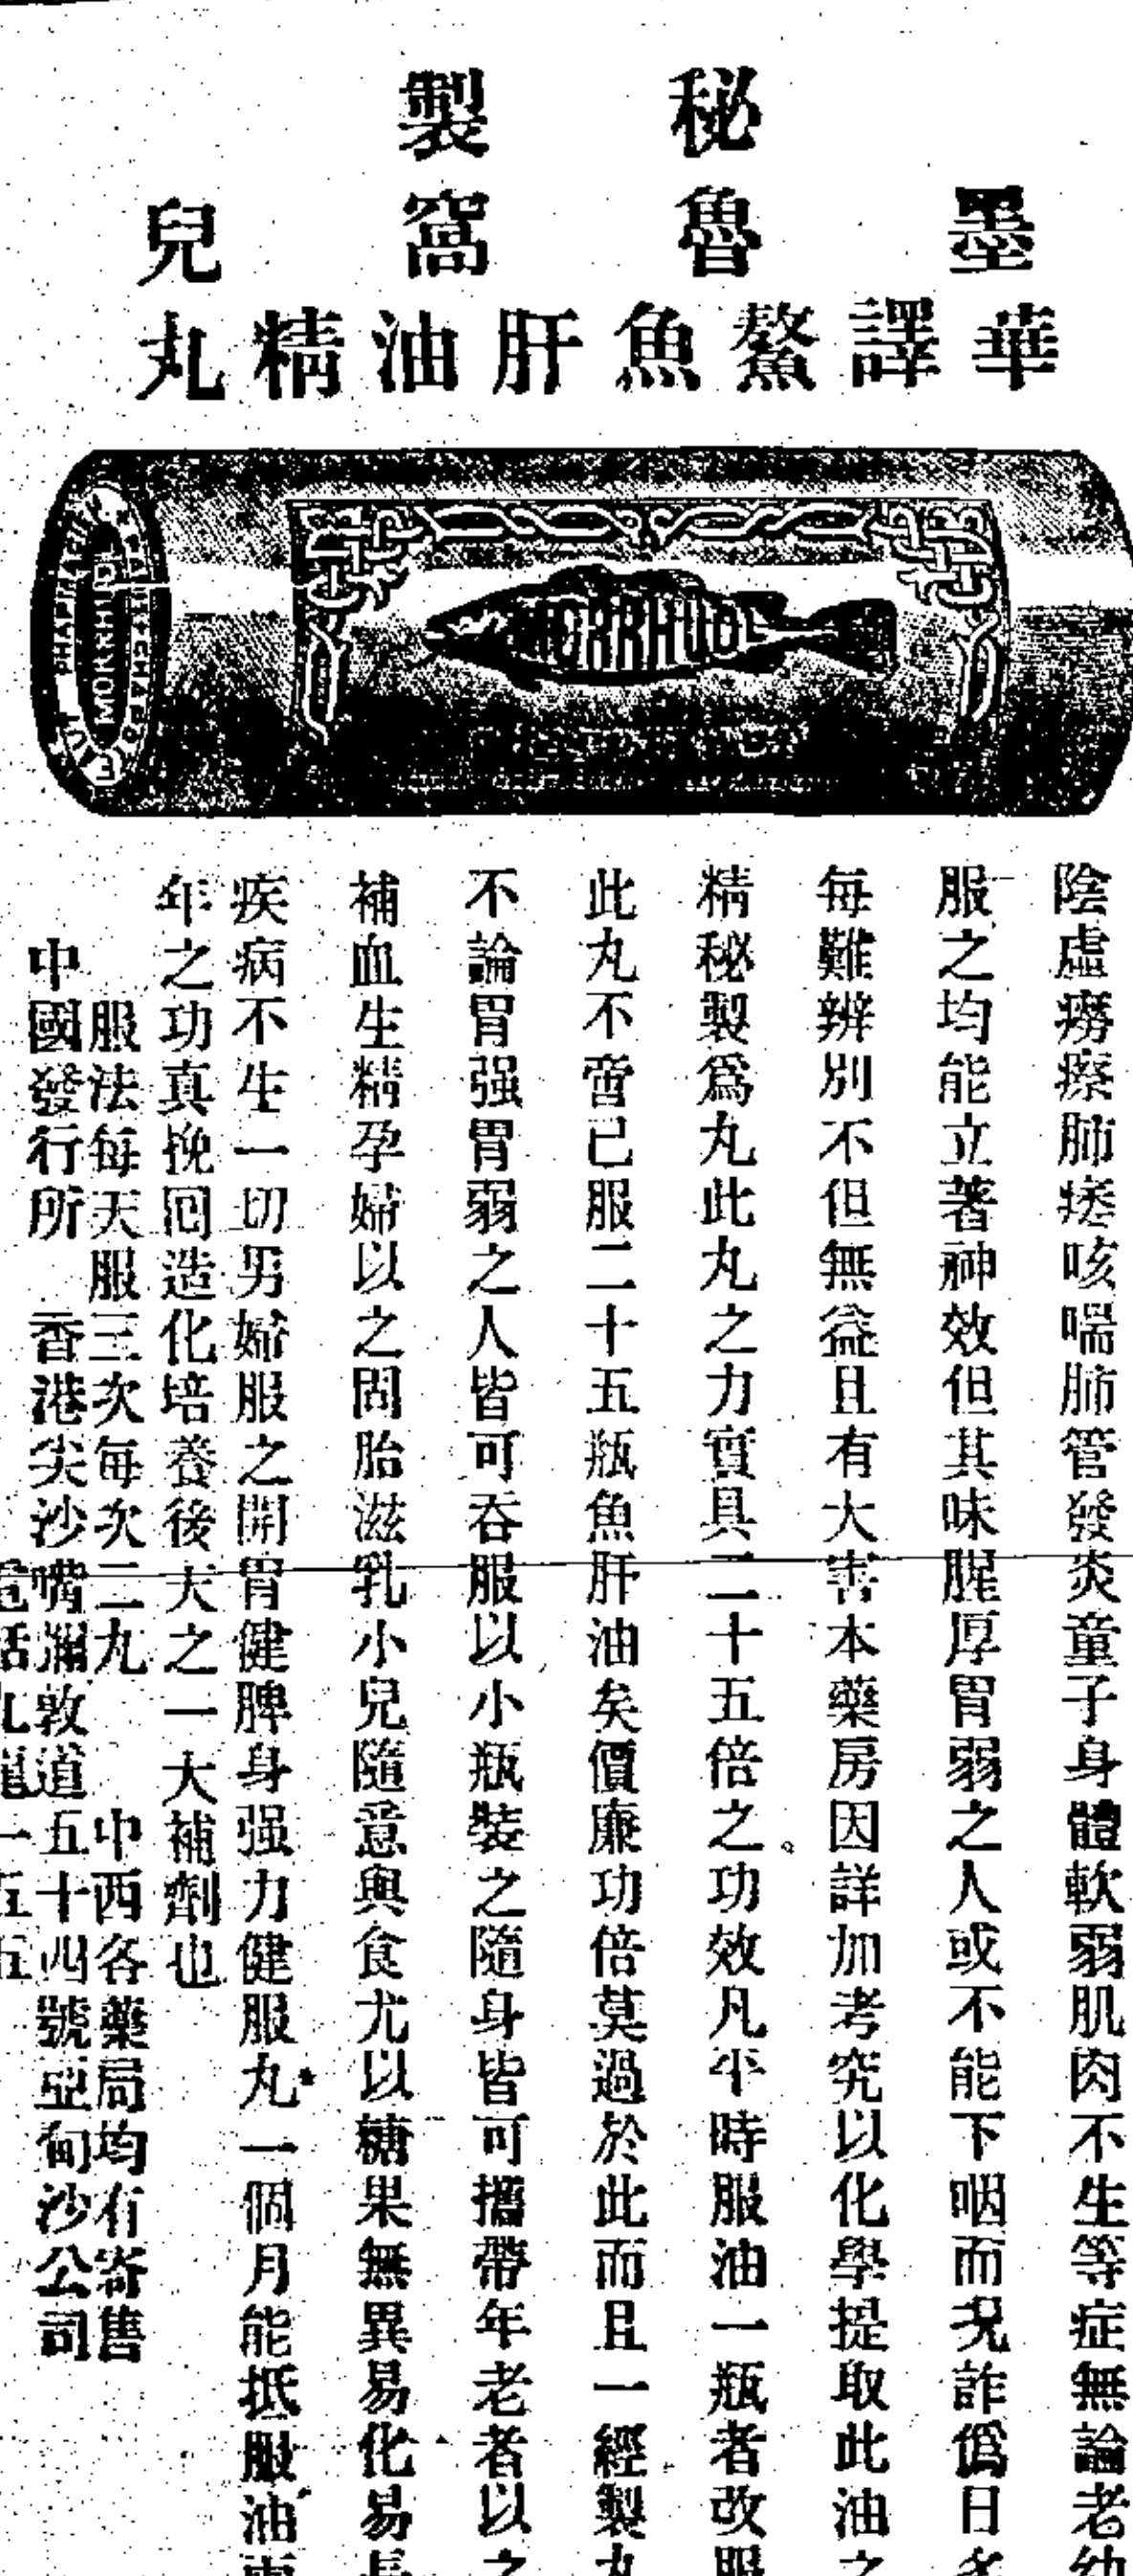 秘製
墨魯窩兒
華譯鰲魚肝油精丸
MORRHUOL
MORRHUOL
陰虛癆瘵肺痿咳喘肺管發炎童子身體軟弱肌肉不生等症無論老幼
服之均能立著神效但其味腥厚胃弱之人或不能下咽而况詐僞日多
每難辨別不但無益且有大害本藥房因詳加考究以化學提取此油之
精秘製爲丸此丸之力實具二十五倍之功效凡平時服油一瓶者改服
此丸不啻已服二十五瓶魚肝油矣價廉功倍莫過於此而且一經製丸
不論胃强胃弱之人皆可吞服以小瓶裝之隨身皆可攜帶年老者以之
補血生精孕婦以之固胎滋乳小兒隨意與食尤以糖果無異易化易長
疾病不生一切男婦服之開胃健脾身强力健服丸一個月能抵服油
年之功真挽回造化培養後天之一大補劑也
服法每天服三次每次二丸 中西各藥局均有寄售
中國發行所 香港尖沙嘴漘敦道五十四號亞甸沙公司
電話九龍一五五